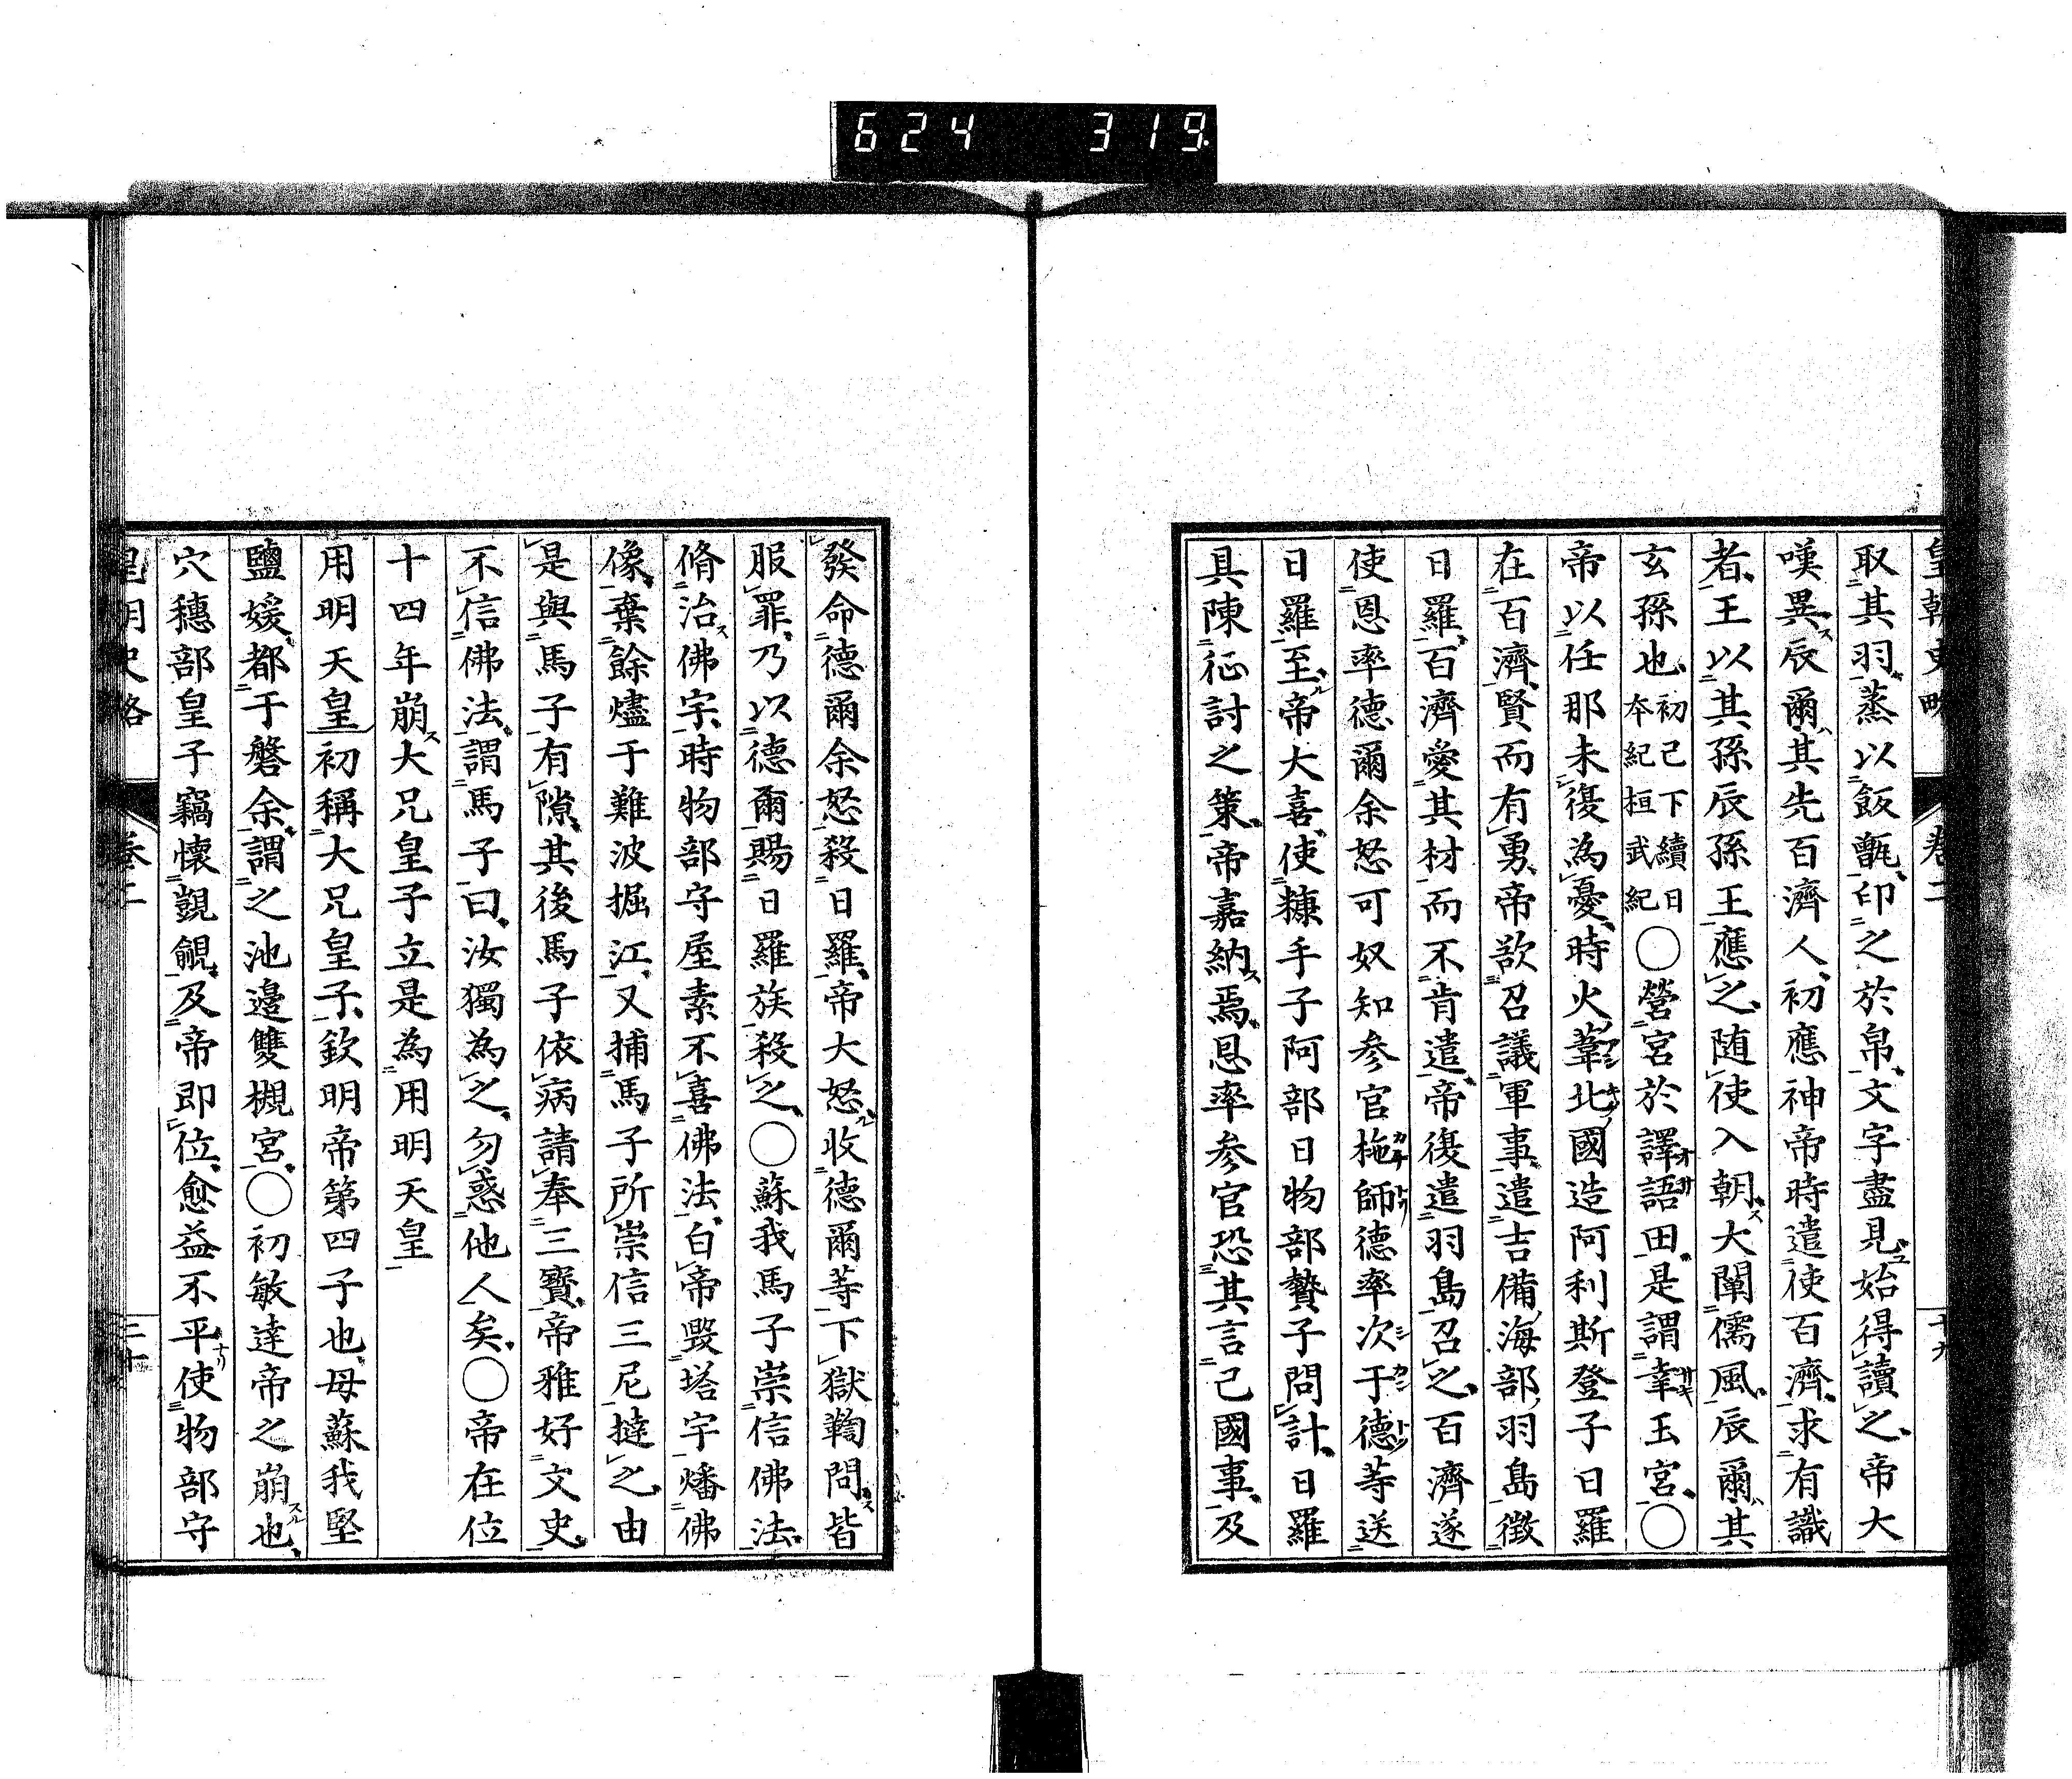 624 319
皇朝史略 卷二 十九
取其羽蒸以飯甑印之於帛文字盡見始得讀之帝大
嘆異辰爾其先百濟人初應神帝時遣使百濟求有識
者王以其孫辰孫王應之隨使入朝大闡儒風辰爾其
玄孫也初己下續日本紀桓武紀○營宮於譯語田是謂幸玉宮○
帝以任那未復為憂時火葦北國造阿利斯登子日羅
在百濟賢而有勇帝欲召議軍事遣吉備海部羽島徵
日羅百濟愛其材而不肯遣帝復遣羽島召之百濟遂
使恩率德爾余怒可奴知參官柂師德率次于德等送
日羅至帝大喜使糠手子阿部日物部贄子問計日羅
具陳征討之策帝嘉納焉恩率參官恐其言己國事及
發命德爾余怒殺日羅帝大怒收德爾等下獄鞫問皆
服罪乃以德爾賜日羅族殺之○蘇我馬子崇信佛法
脩治佛宇時物部守屋素不喜佛法白帝毀塔宇燔佛
像棄餘燼于難波掘江又捕馬子所崇信三尼撻之由
是與馬子有隙其後馬子依病請奉三寶帝雅好文史
不信佛法謂馬子曰汝獨為之勿惑他人矣○帝在位
十四年崩大兄皇子立是為用明天皇
用明天皇初稱大兄皇子欽明帝第四子也母蘇我堅
鹽媛都于磐余謂之池邊雙槻宮○初敏達帝之崩也
穴穗部皇子竊懷覬覦及帝即位愈益不平使物部守
皇朝史略 卷二 二十